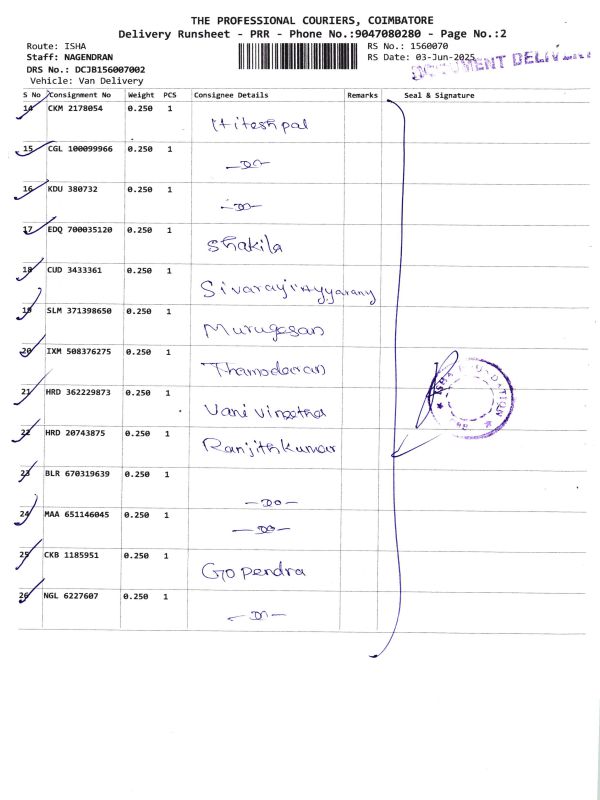 THE PROFESSIONAL COURIERS, COIMBATORE
Delivery Runsheet - PRR - Phone No.:9047080280 - Page No.:2
Route: ISHA RS No.: 1560070
Staff: NAGENDRAN RS Date: 03-Jun-2025
DRS No.: DCJB156007002
Vehicle: Van Delivery
DOCUMENT
S No Consignment No Weight PCS Consignee Details Remarks Seal & Signature
14 CKM 2178054 0.250 1 Hiteshpal
15 CGL 100099966 0.250 1 -Do-
16 KDU 380732 0.250 1 -Do-
17 EDQ 700035120 0.250 1 Shakila
18 CUD 3433361 0.250 1
19 SLM 371398650 0.250 1 Murugesan
20 IXM 508376275 0.250 1
21 HRD 362229873 0.250 1 Vani Vineetha
22 HRD 20743875 0.250 1 Ranjithkumar
23 BLR 670319639 0.250 1 -Do-
24 MAA 651146045 0.250 1 -Do-
25 CKB 1185951 0.250 1 Gopendra
26 NGL 6227607 0.250 1 -Do-
ISHA FOUNDATION